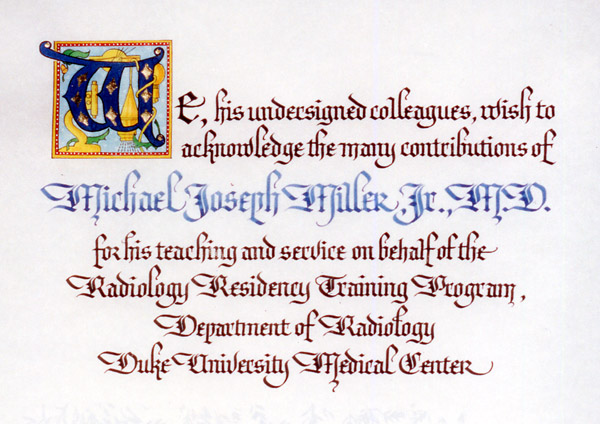 We, his undersigned colleagues, wish to
acknowledge the many contributions of
Michael Joseph Miller, Jr., M.D.
for his teaching and service on behalf of the
Radiology Residency Training Program,
Department of Radiology
Duke University Medical Center